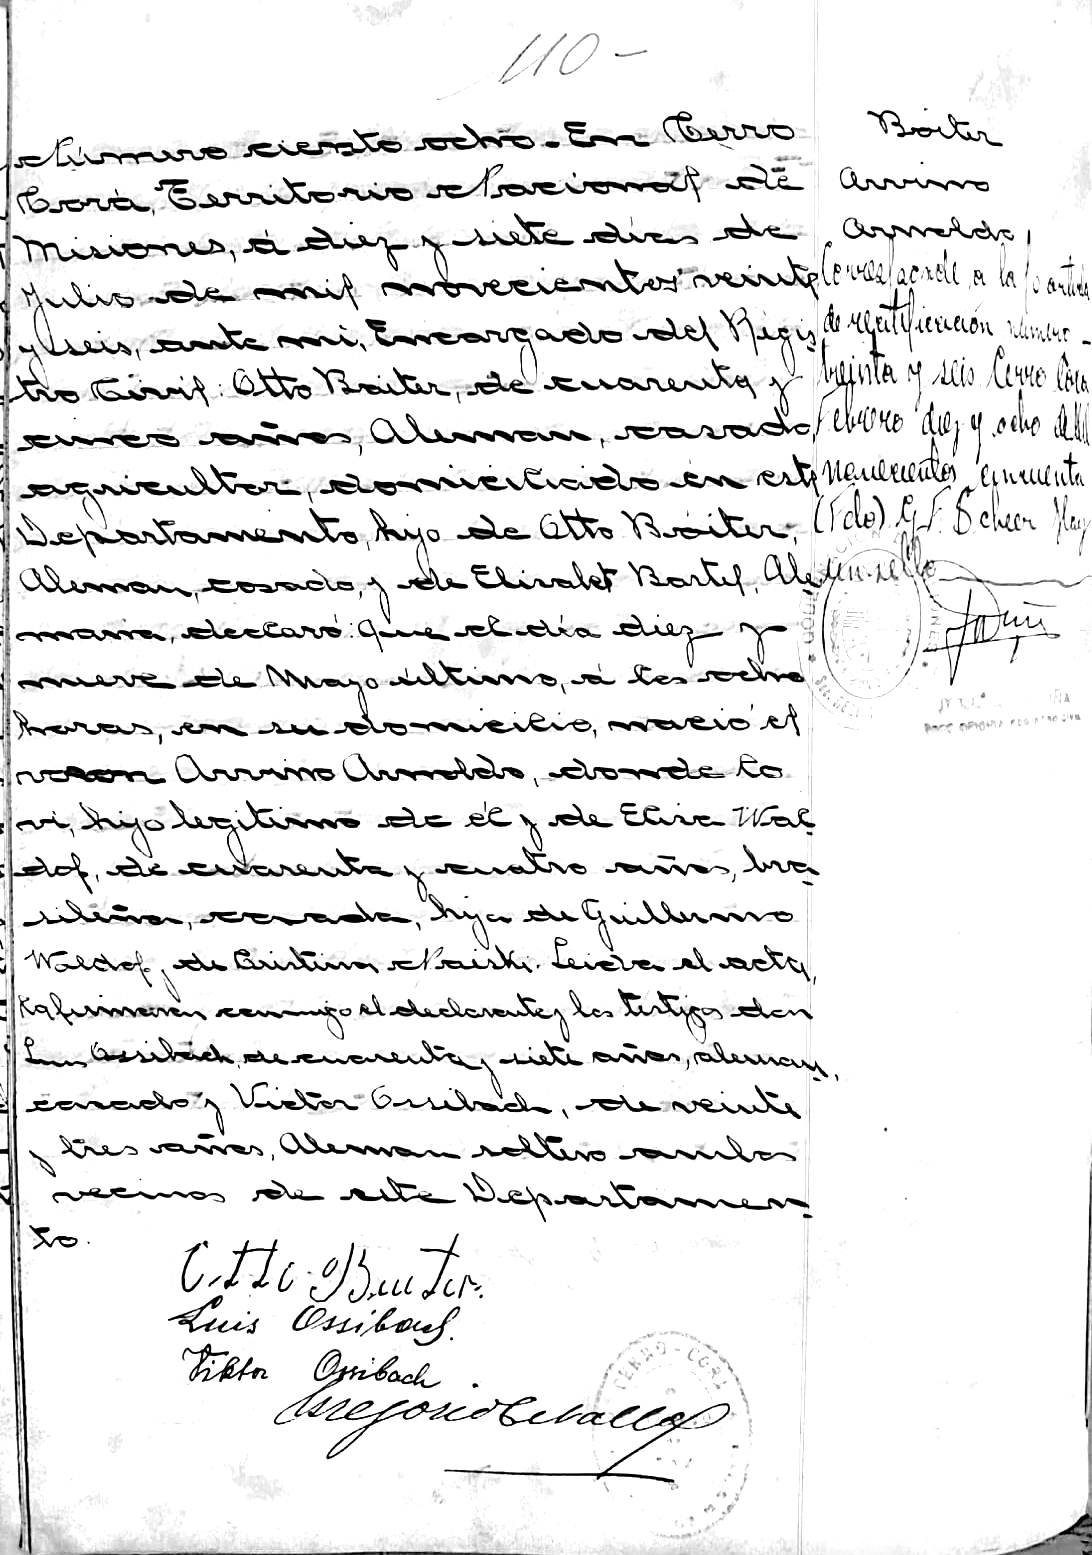 110-
Número ciento ocho. En Cerro
Corá, Territorio Nacional de
Misiones, á diez y siete días de
Julio de mil novecientos veinte
y seis, ante mi, Encargado del Regis
tro Civil: Otto Boiter, de cuarenta y
cinco años, Aleman, casado,
agricultor, domiciliado en este
Departamento, hijo de Otto Boiter,
Aleman, casado, y de Elisabet Bartel, Ale
mana, declaró: Que el día diez y
nueve de Mayo último, á las ocho
horas, en su domicilio, nació el
varon Arvino Arnoldo, donde lo
vi, hijo legitimo de él y de Elisa Wal-
dof, de cuarenta y cuatro años, bra-
sileña, casada, hija de Guillermo
Waldof y de Cristina Leida el acta,
la firmaron conmigo el declarante y los testigos don
Luis Ossibach, de cuarenta y siete años, aleman,
casado y Victor Ossibach, de veinte
y tres años, Aleman soltero ambos
vecinos de este Departamen-
to.
Otto Beuter.
Luis Ossibach.
Viktor Ossibach
Gregorio Ceballos
CERRO-CORÁ
Boiter
Arvino
Arnoldo
Corresponde a la partida
de rectificación numero
treinta y seis Cerro Corá
Febrero diez y ocho de mil
novecientos cincuenta
(Fdo) G. F. Scheer Hay
un sello